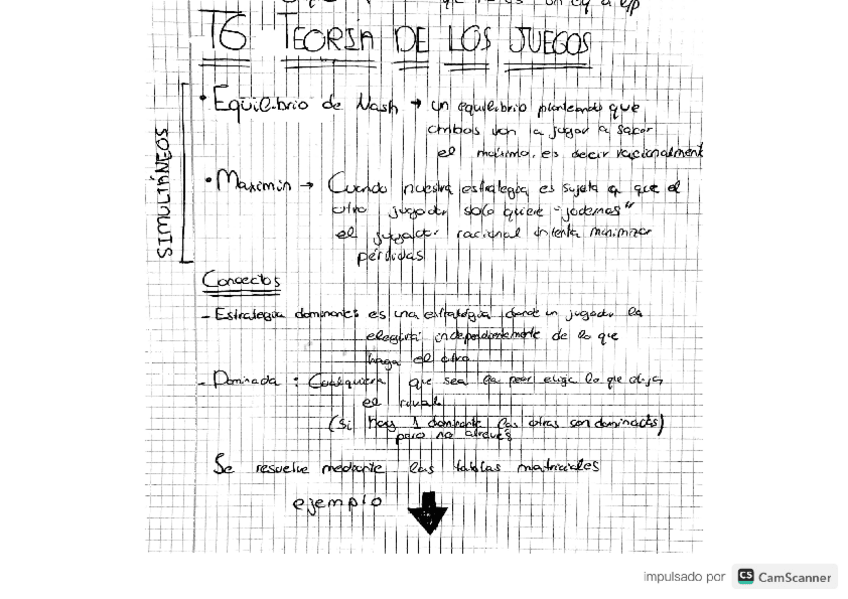 T6 TEORIA DE LOS JUEGOS
SIMULTÁNEOS
• Equilibrio de Nash → un equilibrio planteando que
ambos van a jugar a sacar
el máximo, es decir racionalment
• Maximin → Cuando nuestra estrategia es sujeta a que el
otro jugador solo quiere "jodernos"
el jugador racional intenta minimizar
pérdidas
Conceptos
- Estrategia dominante: es una estrategia donde un jugador la
elegirá independientemente de lo que
haga el otro
- Dominada : Cualquiera que sea la peor elija lo que elija
el rival
(Si hay 1 dominante las otras son dominadas)
pero no alreves
Se resuelve mediante las tablas matriciales
ejemplo
impulsado por CS CamScanner